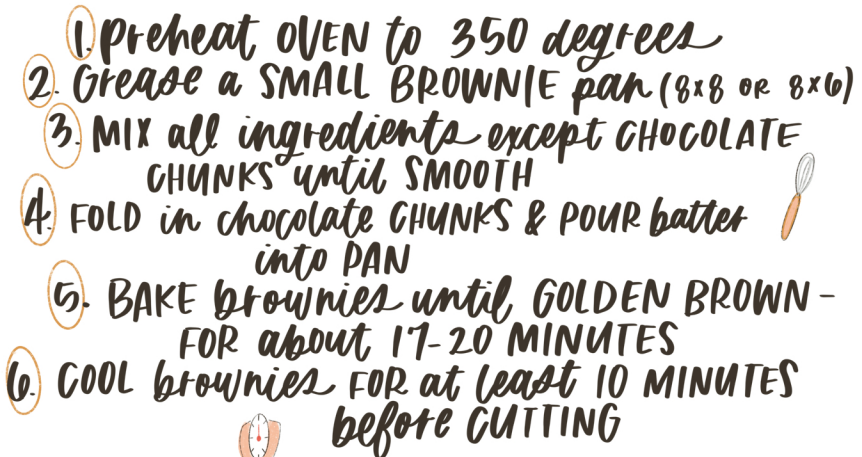 1. Preheat OVEN to 350 degrees
2. Grease a SMALL BROWNIE pan (8x8 OR 8x6)
3. MIX all ingredients except CHOCOLATE
CHUNKS until SMOOTH
4. FOLD in chocolate CHUNKS & POUR batter
into PAN
5. BAKE brownies until GOLDEN BROWN -
FOR about 17-20 MINUTES
6. COOL brownies FOR at least 10 MINUTES
before CUTTING